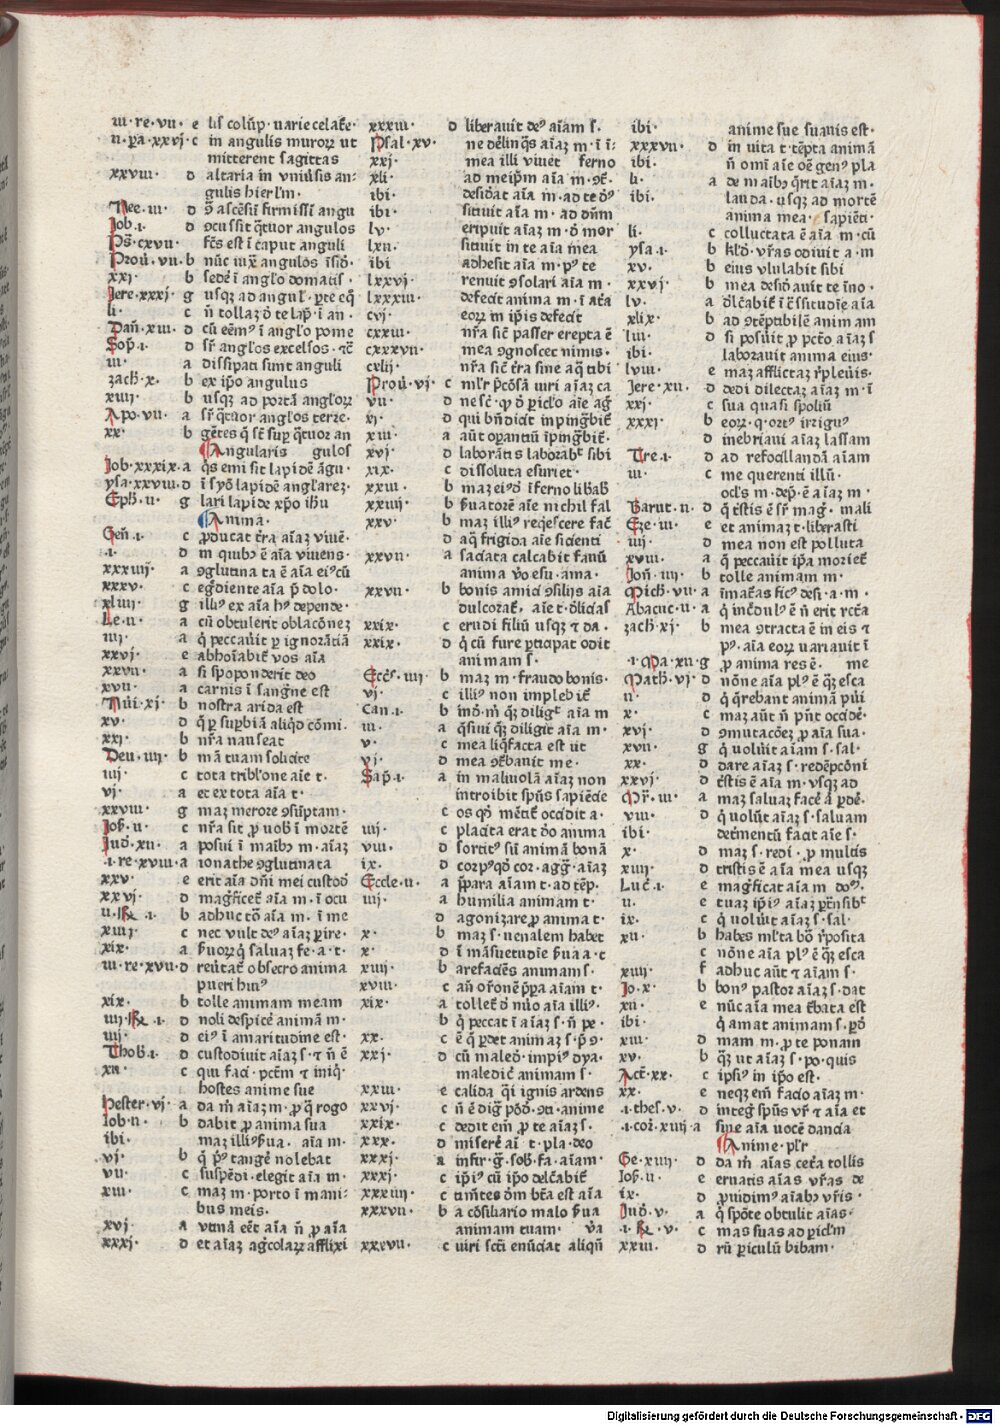 iii·re·vii· e lis colūp· uarie celat̄e·
ii·pa·xxvj·c in angulis muroꝝ ut
mitterent sagittas
xxviii· d altaria in vniu̓sis an-
gulis hierl̄m·
Nee·iii· d 
Job·i· d ꝯcussit q̄tuor angulos
Ps̄·cxvii· f̄cs est ī caput anguli
Prou̓·vii·b
xxj b sede ī anglo domatis·
Jere·xxxj g
li· c n̄ tollaꝫ d̓ te lap̄· ī an·
Dan̄·xiii· d cū eēm⁹ ī anglo pome
Sop̄·i· d sr̄ anglos excelsos·
iii· a dissipati sunt anguli
zach·x· b ex ip̄o angulus
xiiij b usqꝫ ad portā angloꝝ
Apo·vii· a sr̄ q̄tuor anglos terre·
xx· b gētes q̄ st̄ suꝑ q̄tuor an
Angularis gulos
Job·xxxix·a q̄s emisit lapidē āgu·
ysa·xxviii·d ī syō lapidē anglareꝫ·
Eph·ii· g lari lapide xp̄o ih̄u
Anima·
Gen̄·i· c ꝓducat t̄ra aīaꝫ viuē·
·i· d ī quibꝫ ē aīa viuens·
xxxiiij a ꝯglutinata ē aīa ei⁹ cū
xxxv· c eg̓diente aīa p̄ dolo·
xliiij g illi⁹ ex aīa h⁹ depende·
Le·ii· a cū obtulerit oblacōnez
iiij a q̓ peccau̓it ꝑ ignorātiā
xxvj· e abhoīabit̓ vos aīa
xxvii a si spoponderit deo
xvii· a carnis ī sang̓ne est
Nūi·xj· b nostra arida est
xv· d q̓ ꝑ suꝑbiā aliqd̓ cōmi·
xxj· b nr̄a nauseat
Deu·iiij· b m̄ā tuam solicite
iiij c tota tribl̓one aīe t·
vj· a et ex tota aīa t·
xxviii· g maꝫ merore ꝯsūptam·
Josꝫ·ii· c nr̄a sit ꝓ uob̄ ī mortē
Jud̓·xii· a posui ī maībꝫ m·aīaꝫ
·i·re·xviii·a ionathe ꝯglutinata
xxv· e erit aīa dn̄i mei custod̓
xxvj d mag̓ficet̓ aīa m·ī ocu
ii·R̄·i· b adhuc tō aīa m·ī me
xiiij c nec vult de⁹ aīaꝫ ꝑire·
xix· a 
iii·re·xvii·d reu̓tat̓ obsecro anima
pueri hui⁹
xix· b tolle animam meam
iiij·R̄·i· d noli despicē animā m·
iiij· d ei⁹ ī amaritudine est·
Thob·i· d custodiuit aīaꝫ s·⁊ n̄ ē
xii· c qui faci·pct̄m ⁊ iniq̓·
hostes anime sue
Hester·vj· a da m̄ aīaꝫ m·ꝓ q̓ rogo
Iob·ii· b dabit ꝓ anima sua
ibi· maꝫ illi⁹ ẜua· aīa m·
vj· b q̓ p⁹ tangē nolebat
vii· c suspēdi·elegit aīa m·
xiii· c maꝫ m·porto ī mani-
bus meis·
xvj a vtinā eēt aīa n̄ ꝓ aīa
xxxj· d et aīaꝫ ag̓colaꝝ afflixi
xxxiii· d liberauit de⁹ aīam s·
Psal·xv· ne dēlinq̄s aīaꝫ m·ī ī-
xxj· mea illi viuet ferno
xli· ad meip̄m aīa m·
ibi· desid̓at aīa m·ad te d̓⁹
ibi· sitiuit aīa m·ad dn̄m
lv· eripuit aīaꝫ m·d̓ mor
lxii· sitiuit in te aīa mea
ibi adhesit aīa m·p⁹ te
lxxvj· renuit ꝯsolari aīa m·
lxxxiii· defecit anima m·ī at̄a
cvj· eoꝝ in ip̄is defecit
cxxiii· nr̄a sic̄ passer erepta ē
cxxxvii· mea ꝯgnoscet nimis·
cxlij· nr̄a sic̄ t̄ra sine aq̄ tibi
Prou̓·vj· c ml̄r p̄cōsā uiri aīaꝫ ca
vii·
xj· d qui bn̄dicit inpīg̓bit̓·
xiii· a aūt oꝑantiū īpīg̓bit̓·
xvj· d laborātis laborabᵗ sibi
xix· c dissoluta esuriet·
xxiii b maꝫ ei⁹ d̓ īferno lib̄ab̓
xxiiij b ẜuatorē aīe nichil fal
xxv· b maꝫ illi⁹ reqi̓escere fac̄
d aq̄ frigida aīe sicienti
xxvii a saciata calcabit fauū
anima v̓o esu·ama·
xxvii· b bonis amici ꝯsilijs aīa
dulcorat̓· aīe t·d̓licias
xxix· c erudi filiū usqꝫ ⁊ da·
xxix· d q̓ cū fure ꝑticipat odit
animam s·
Eccs̄·iiij b maꝫ m·fraudo bonis·
vj· c illi⁹ non implebit̓
Can·i· b 
iii· a q̄siui q̄ꝫ diligit aīa m·
v· c mea liq̓facta est ut
vj· d mea ꝯt̓bauit me·
Sap̄·i· a in maliuolā aīaꝫ non
introibit sp̄us sapiēcie
c os qd̓ mētit̓ occidit a·
iiij· c placita erat d̓o anima
viii· d sortit⁹ sū animā bonā
ix· d corp⁹ qd̓ cor·agg̓·aīaꝫ
Eccle·ii· a p̄para aīam t·ad tēp·
iiij· a humilia animam t·
d agonizare ꝓ anima t·
x· b maꝫ s·uenalem habet
x· d ī māsuetudīe ẜua a·t
xiiij b arefaciēs animam s·
xviii· c an̄ or̄onē p̄para aīam t·
xix· a tollet̓ d̓ nūo aīa illi⁹·
b q̓ peccat ī aīaꝫ s·n̄ pe·
xx· c ē q̓ ꝑdet animaꝫ s·
xxj· d cū maled̓·impi⁹ dya·
maledic̄ animam s·
xxiii· e calida q̄i ignis ardens
xxvj· c
xxix· c dedit em̄ ꝓ te aīaꝫ s·
xxx· d miserē aī t·pla·deo
xxxj· a
xxxj· c ip̄i⁹ cū ip̄o delc̄abit̓
xxxiiij· c tim̄tes dn̄m bt̄a est aīa
xxxvii· b a cōsiliario malo ẜua
animam tuam· v̓a
xxxvii· c uiri scti enūciat aliqn̄
ibi· anime sue suauis est·
xxxvii· d in uita t·tēpta animā
ibi· n̄ omī aīe oē gen⁹ pla
li· a de maībꝫ q̄rit aīaꝫ m·
ibi· lauda·usqꝫ ad mortē
anima mea· sapiēti·
li· c colluctata ē aīa m·cū
ysa·i· b kl̄d̓·vr̄as odiuit a·m
xv· b eius vlulabit sibi
xxvj· b mea desid̓auit te ī no·
lv·
xlix· b ad ꝯtēptibilē animam
liii· d si posu̓it ꝓ pctō aīaꝫ s
ibi· laborauit anima eius·
lviii· e maꝫ afflictaꝫ r̓pleu̓is·
Jere·xii· d dedi dilectaꝫ aīaꝫ m·ī
xxj· c sua quasi spoliū
xxxj· b eoꝝ·q·ort⁹ irrigu⁹
d inebriaui aīaꝫ lassam
Tre·i· d ad refocillandā aīam
iii· c me querenti illū·
ocl̓s m·dep̄·ē aīa m·
Baruc·ii· d q̓ t̓stis ē sr̄ mag̓·mali
Eze·iii· e et animaꝫ t·liberasti
iiij· d mea non est polluta
xviii· a q̄ peccau̓it ip̄a moriet̓
Jon̄·iiij b tolle animam m·
Mich·vii·a
Abacuc·ii·a q̓ incd̓ul⁹ ē n̄ erit rc̄ta
zach·xj· b mea ꝯtracta ē in eis ⁊
p⁹·aīa eoꝝ uariauit ī
·i·Ma·xii·g ꝓ anima res ē· me
Math·vj· d nōne aīa pl⁹ ē q̄ꝫ esca
ii· d q̓ q̄rebant animā pu̓i
x· c maꝫ aūt n̄ pn̄t occid̓e·
xvj· d ꝯmutacōeꝫ ꝓ aīa sua·
xvii· g q̓ uolu̓it aīam s·sal·
xx· d dare aīaꝫ s·redēpcōni
xxvj· d t̓stis ē aīa m·vsqꝫ ad
Mr̄·iii· a maꝫ saluaꝫ facē ā ꝑdē·
viii· d q̓ uolu̓it aīaꝫ s·saluam
ibi· detm̄entū faciat aīe s·
x· d maꝫ s·redi·ꝓ multis
xiiij d tristis ē aīa mea usqꝫ
Luc̄·i· e mag̓ficat aīa m·do⁹·
ii· e tuaꝫ ip̄i⁹ aīaꝫ ꝑt̄nsibᵗ
ix· c q̓ uolu̓it aīaꝫ s·sal·
xii· b habes ml̓ta bo̓ r̓posita
c nōne aīa pl⁹ ē q̄ꝫ esca
xiiij· f adhuc aūt ⁊ aīam s·
Jo·x· b bon⁹ pastor aīaꝫ s·dat
xii· e nūc aīa mea t̓bata est
ibi· q̓ amat animam s·ꝑd̓
xiii· d mam m·ꝓ te ponam
xv· b q̄ꝫ ut aīaꝫ s·po·quis
Act̄·xx· c ipsi⁹ in ip̄o est·
xx· e neqꝫ em̄ facio aīaꝫ m·
·i·thes·v· d integ̓ sp̄us vr̄ ⁊ aīa et
·i·cor̄·xiiij·a sine aīa vocē dancia
Anime plr̄
Ge·xiiij· d da m̄ aīas cet̓a tollis
Josꝫ·ii· e eruatis aīas vr̄as de
ix· d ꝓuidim⁹ aīabꝫ vr̄is·
Jud̓·v· a q̓ spōte obtulit aīas·
·i·R̄·v· c mas suas ad ꝑicl̄m
xxiii· d rū ꝑiculū bibam·
Digitalisierung gefördert durch die Deutsche Forschungsgemeinschaft - DFG